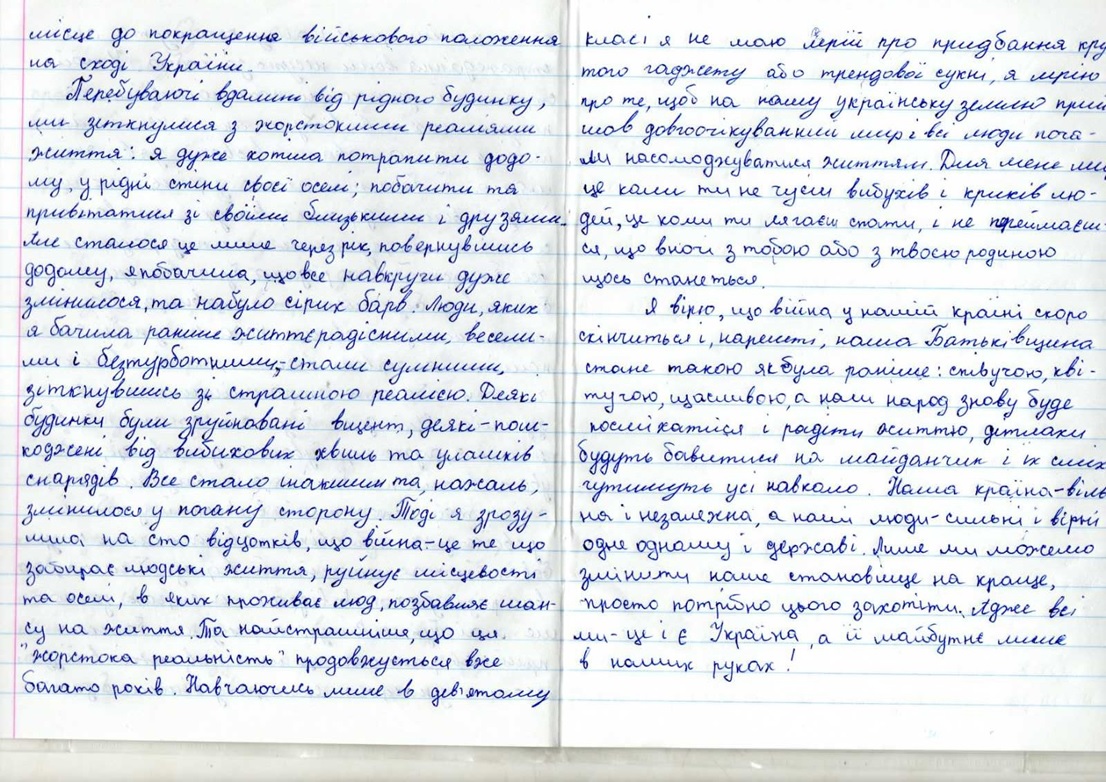 місце до покращення військового положення
на сході України.
Перебуваючі вдалині від рідного будинку,
ми зіткнулися з жорстокими реаліями
життя: я дуже хотіла потрапити додо-
му, у рідні стіни своєї оселі; побачити та
привітатися зі своїми близькими і друзями.
Але сталося це лише через рік, повернувшись
додому, я побачила, що все навкруги дуже
змінилося, та набуло сірих барв. Люди, яких
я бачила раніше життєрадісними, весели-
ми і безтурботними,-стали сумними,
зіткнувшись зі страшною реалією. Деякі
будинки були зруйновані вщент, деякі-пош-
коджені від вибихових хвиль та уламків
снарядів. Все стало інакшим та, нажаль,
змінилося у погану сторону. Тоді я зрозу-
міла на сто відцотків, що війна-це те що
забирає людські життя, руйнує місцевості
та оселі, в яких проживає люд, позбавляє шан-
су на життя. Та найстрашніше, що ця
"жорстока реальність" продовжується вже
багато років. Навчаючись лише в дев'ятому
класі я не маю мрій про придбання кру
того гаджету або трендової сукні, я мрію
про те, щоб на нашу українську землю прий
шов довгоочікуванний мир і всі люди поча-
ли насолоджуватися життям. Для мене ми
це коли ти не чуєш вибухів і криків лю-
дей, це коли ти лягаєш спати, і не переймаєш-
ся, що вночі з тобою або з твоєю родиною
щось станеться.
Я вірю, що війна у нашій країні скоро
скінчиться і, нарешті, наша Батьківщина
стане такою як була раніше: співучою, кві-
тучою, щасливою, а наш народ знову буде
посміхатися і радіти життю, дітлахи
будуть бавитися на майданчик і їх сміх
чутимуть усі навколо. Наша країна-віль
на і незалежна, а наші люди-сильні і вірні
одне одному і державі. Лише ми можемо
змінити наше становище на краще,
просто потрібно цього захотіти. Адже всі
ми-це і є Україна, а її майбутнє лише
в наших руках!